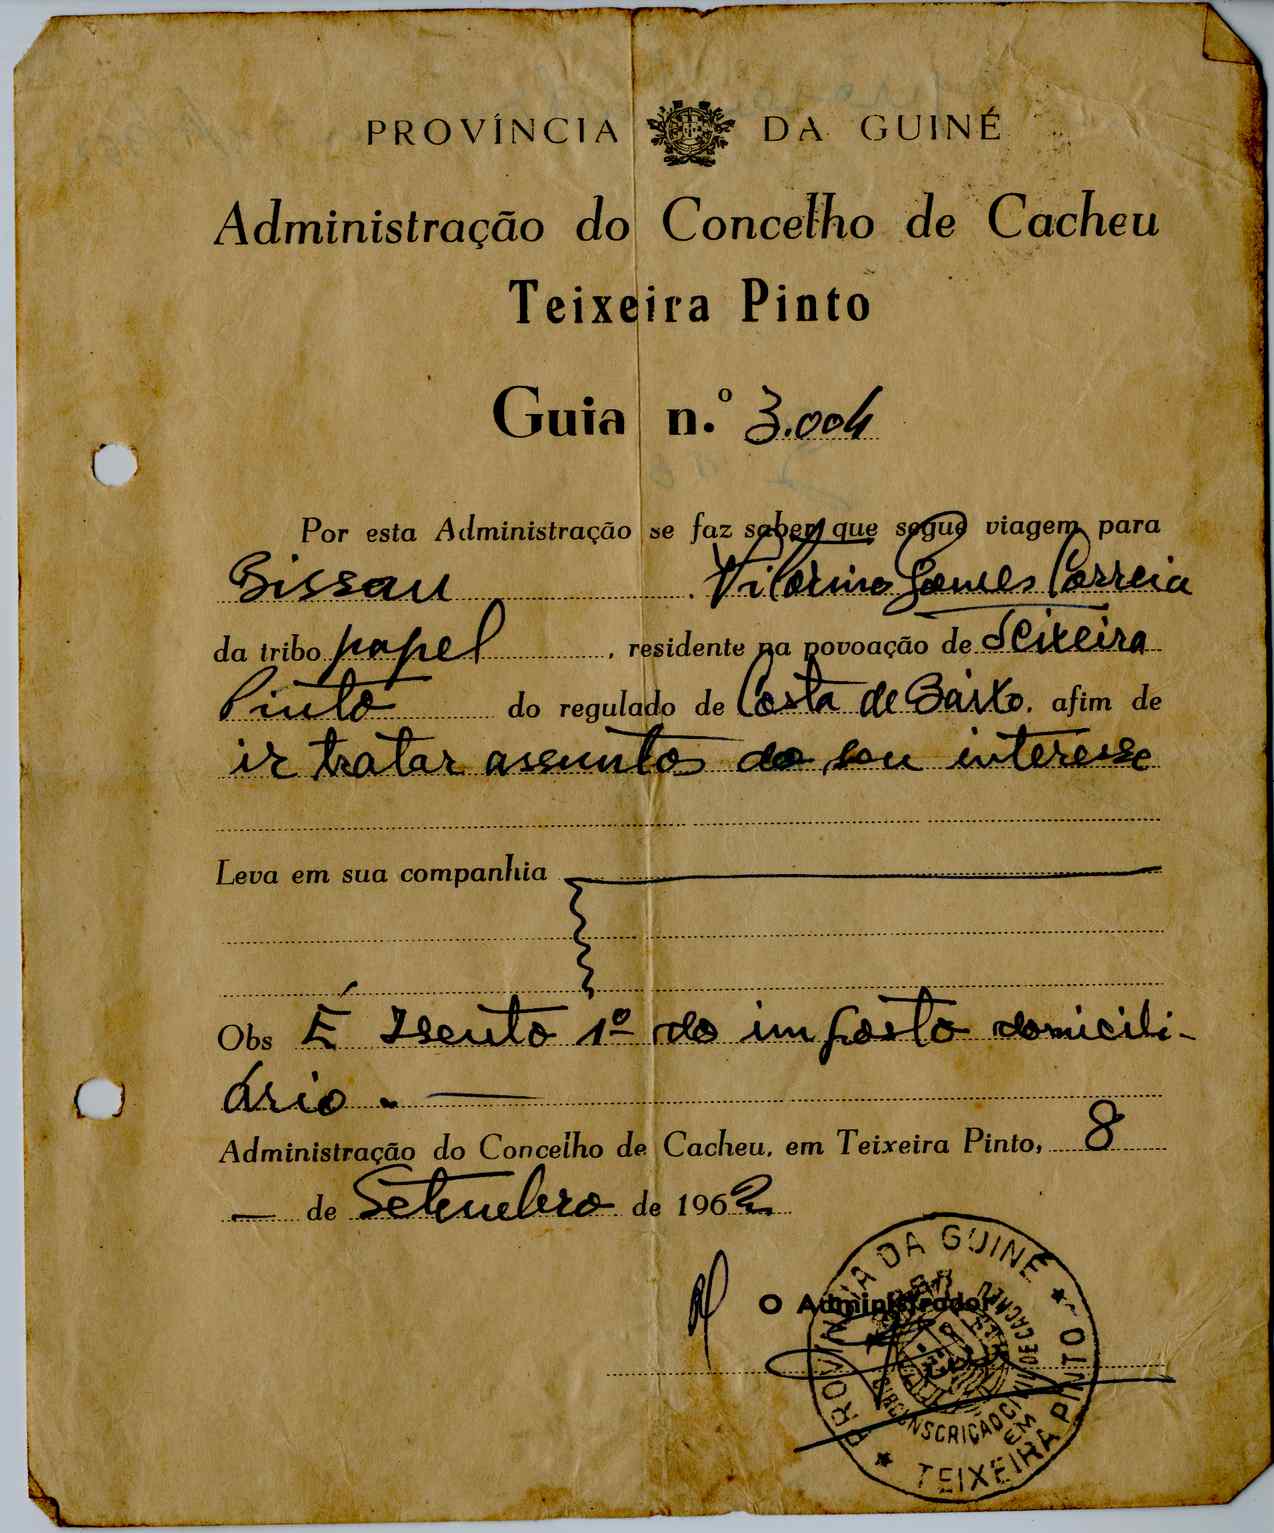 PROVÍNCIA DA GUINÉ
Administração do Concelho de Cacheu
Teixeira Pinto
Guia n.º 3.004
Por esta Administração se faz saber que segue viagem para
Bissau Vitorino Gomes Correia
da tribo papel, residente na povoação de Teixeira
Pinto do regulado de Costa de Baixo, afim de
ir tratar assuntos do seu interesse
Leva em sua companhia
Obs É Isento 1º do imposto domicili-
ário. —
Administração do Concelho de Cacheu, em Teixeira Pinto, 8
— de Setembro de 1962
O Administrador
PROVINCIA DA GUINÉ
CIRCUNSCRIÇÃO CIVIL DE CACHEU
EM
TEIXEIRA PINTO